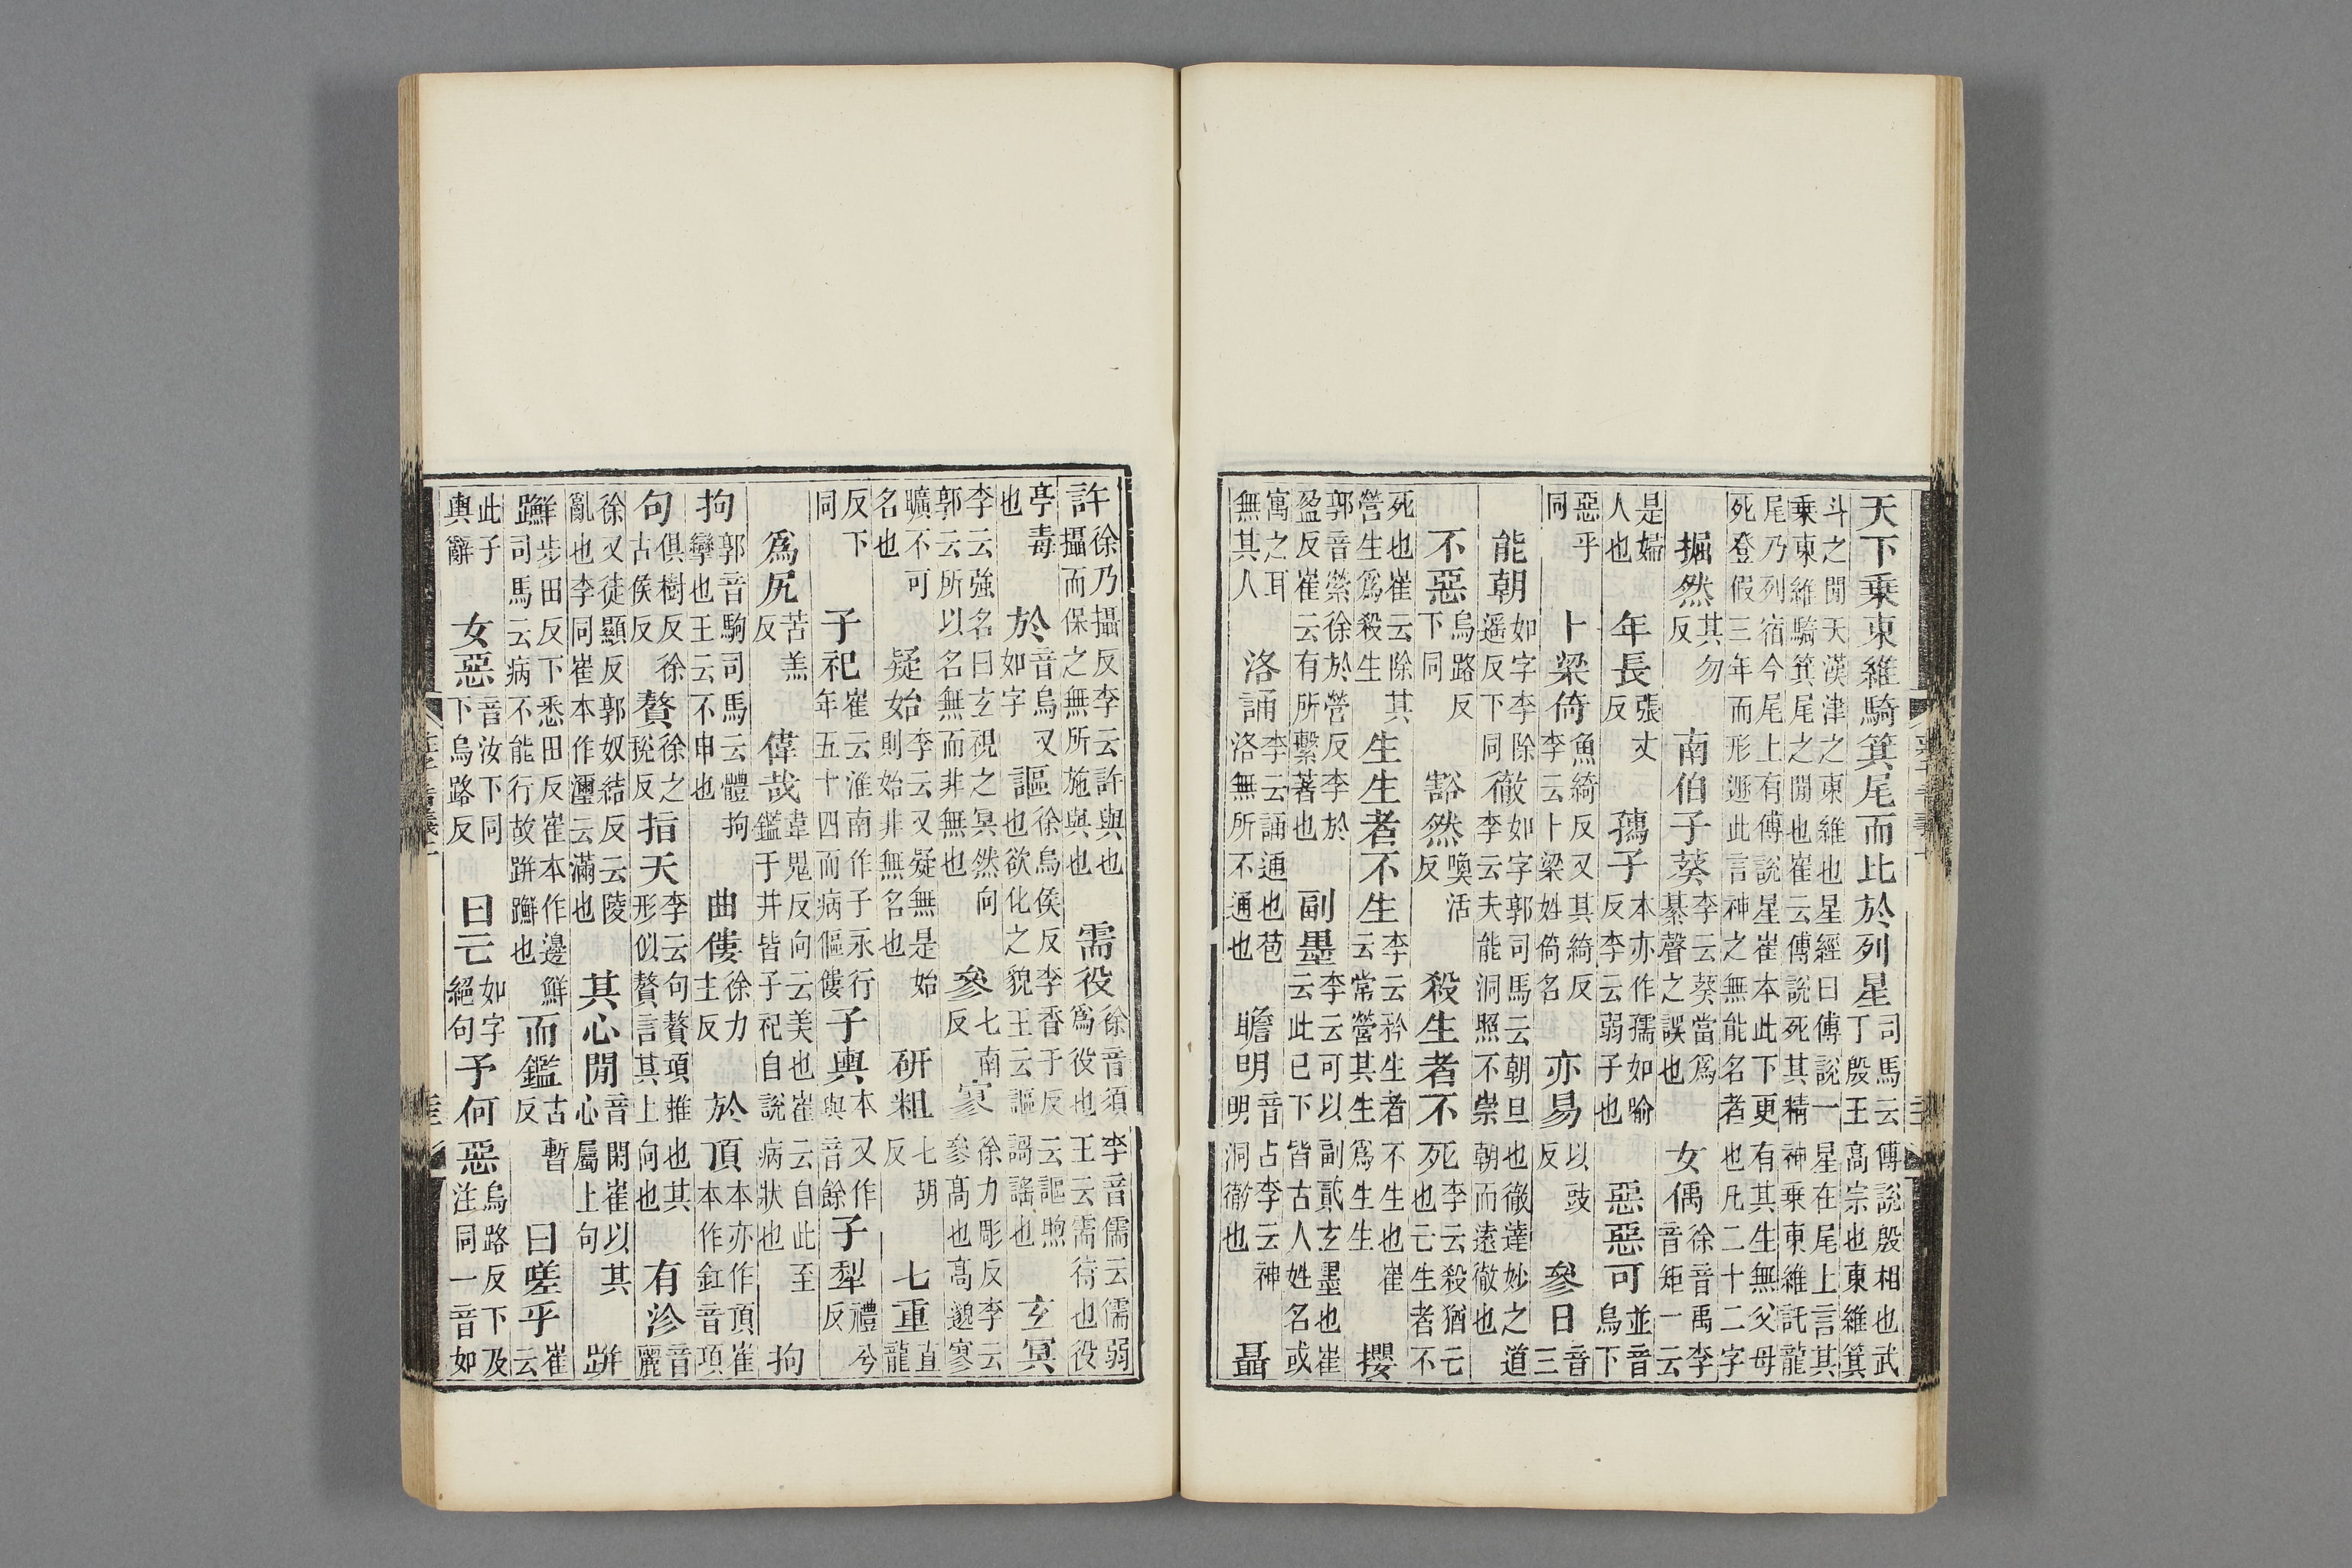 天下乗東維騎箕尾而比於列星司馬云傅說殷相也武丁殷王高宗也東維箕
斗之閒天漢津之東維也星經曰傅說一星在尾上言其乗東維騎箕尾之閒也崔云傅說死其精神乗東維託龍
尾乃列宿今尾上有傅說星崔本此下更有其生無父母死登假三年而形遯此言神之無能名者也凡二十二字
掘然其勿反南伯子葵李云葵當爲綦聲之誤也女偊徐音禹李音矩一云
是婦人也年長張丈反孺子本亦作孺如喻反李云弱子也惡惡可並音烏下
惡乎同卜梁倚魚綺反又其綺反李云卜梁姓倚名亦易以豉反參日音三
能朝如字李除遥反下同徹如字郭司馬云朝旦也徹達妙之道李云夫能洞照不崇朝而遠徹也
不惡烏路反下同豁然喚活反殺生者不死李云殺猶亡也亡生者不
死也崔云除其營生爲殺生生生者不生李云矜生者不生也崔云常營其生爲生生攖
郭音縈徐於營反李於盈反崔云有所繫著也副墨李云可以副貳玄墨也崔云此已下皆古人姓名或
寓之耳無其人洛誦李云誦通也苞洛無所不通也瞻明音占李云神明洞徹也聶
許徐乃攝反李云許與也攝而保之無所施與也需役徐音須李音儒云儒弱爲役也王云需待也役
亭毒也於音烏又如字謳徐烏侯反李香于反云謳煦也欲化之貌王云謳謌謠也玄冥
李云強名曰玄視之冥然向郭云所以名無而非無也參七南反寥徐力彫反李云參髙也髙邈寥
曠不可名也疑始李云又疑無是始則始非無名也研粗七胡反七重直龍
反下同子祀崔云淮南作子永行年五十四而病傴僂子輿本又作與音餘子犁禮兮反
爲尻苦羔反偉哉韋鬼反向云美也崔云自此至鑑于井皆子祀自說病狀也拘
拘郭音駒司馬云體拘攣也王云不申也曲僂徐力主反於頂本亦作頂崔本作釭音項
句俱樹反徐古侯反贅徐之稅反指天李云句贅項椎也其形似贅言其上向也有沴音麗
徐又徒顯反郭奴結反云陵亂也李同崔本作灅云滿也其心閒音閑崔以其心屬上句跰
𨇤步田反下悉田反崔本作邊鮮司馬云病不能行故跰𨇤也而鑑古暫反曰嗟乎崔云
此子輿辭女惡音汝下同下烏路反曰亡如字絕句予何惡烏路反下及注同一音如